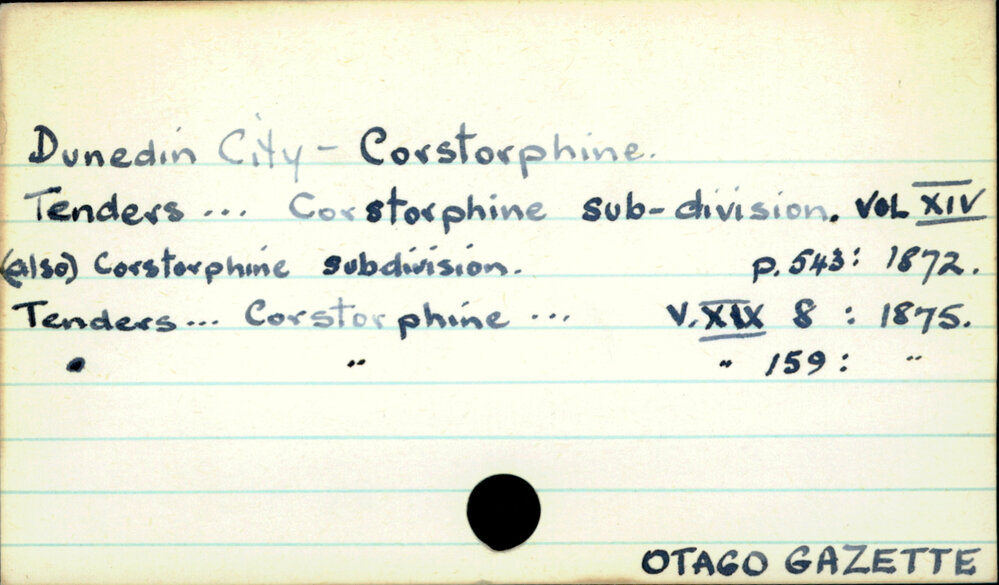 Dunedin City - Corstorphine.
Tenders ... Corstorphine sub-division. VOL XIV
(also) Corstorphine subdivision. p. 543: 1872.
Tenders ... Corstorphine ... V. XIX 8 : 1875.
" " " 159: "
OTAGO GAZETTE